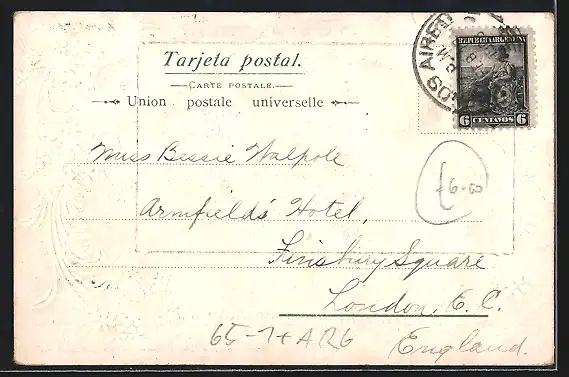 Tarjeta postal.
CARTE POSTALE.
Union postale universelle
BUENOS AIRES
REPUBLICA ARGENTINA
6 CENTAVOS 6
Miss Bessie Walpole
Armfield's Hotel,
Finsbury Square
London, E. C.
England.
6.00
65-1+AR6